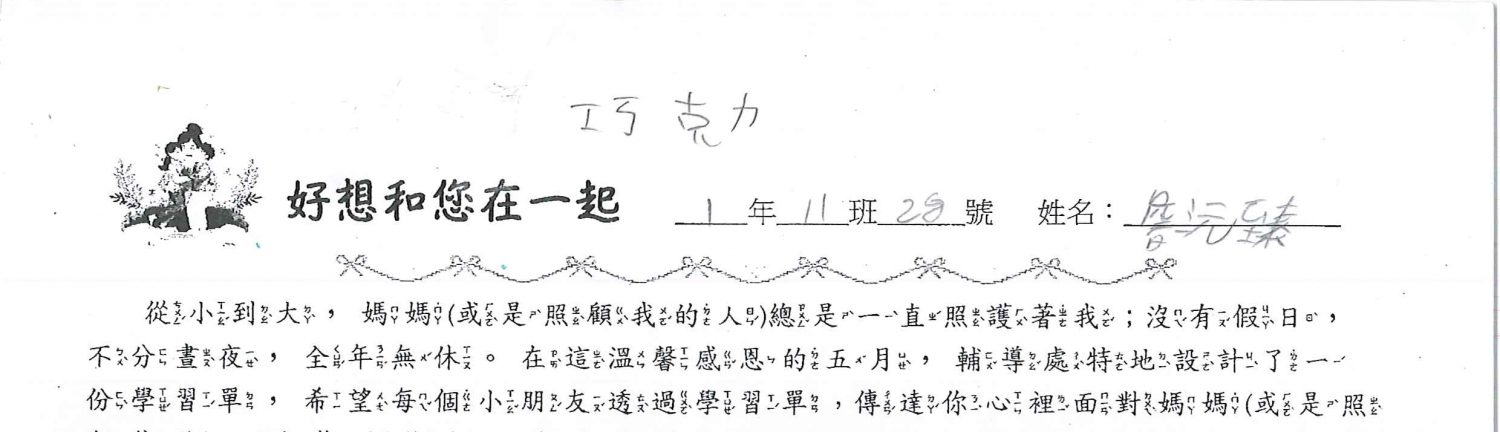 巧克力
好想和您在一起 1年11班28號 姓名：詹沅臻
從小到大，媽媽(或是照顧我的人)總是一直照護著我；沒有假日，
不分晝夜，全年無休。在這溫馨感恩的五月，輔導處特地設計了一
份學習單，希望每個小朋友透過學習單，傳達你心裡面對媽媽(或是照